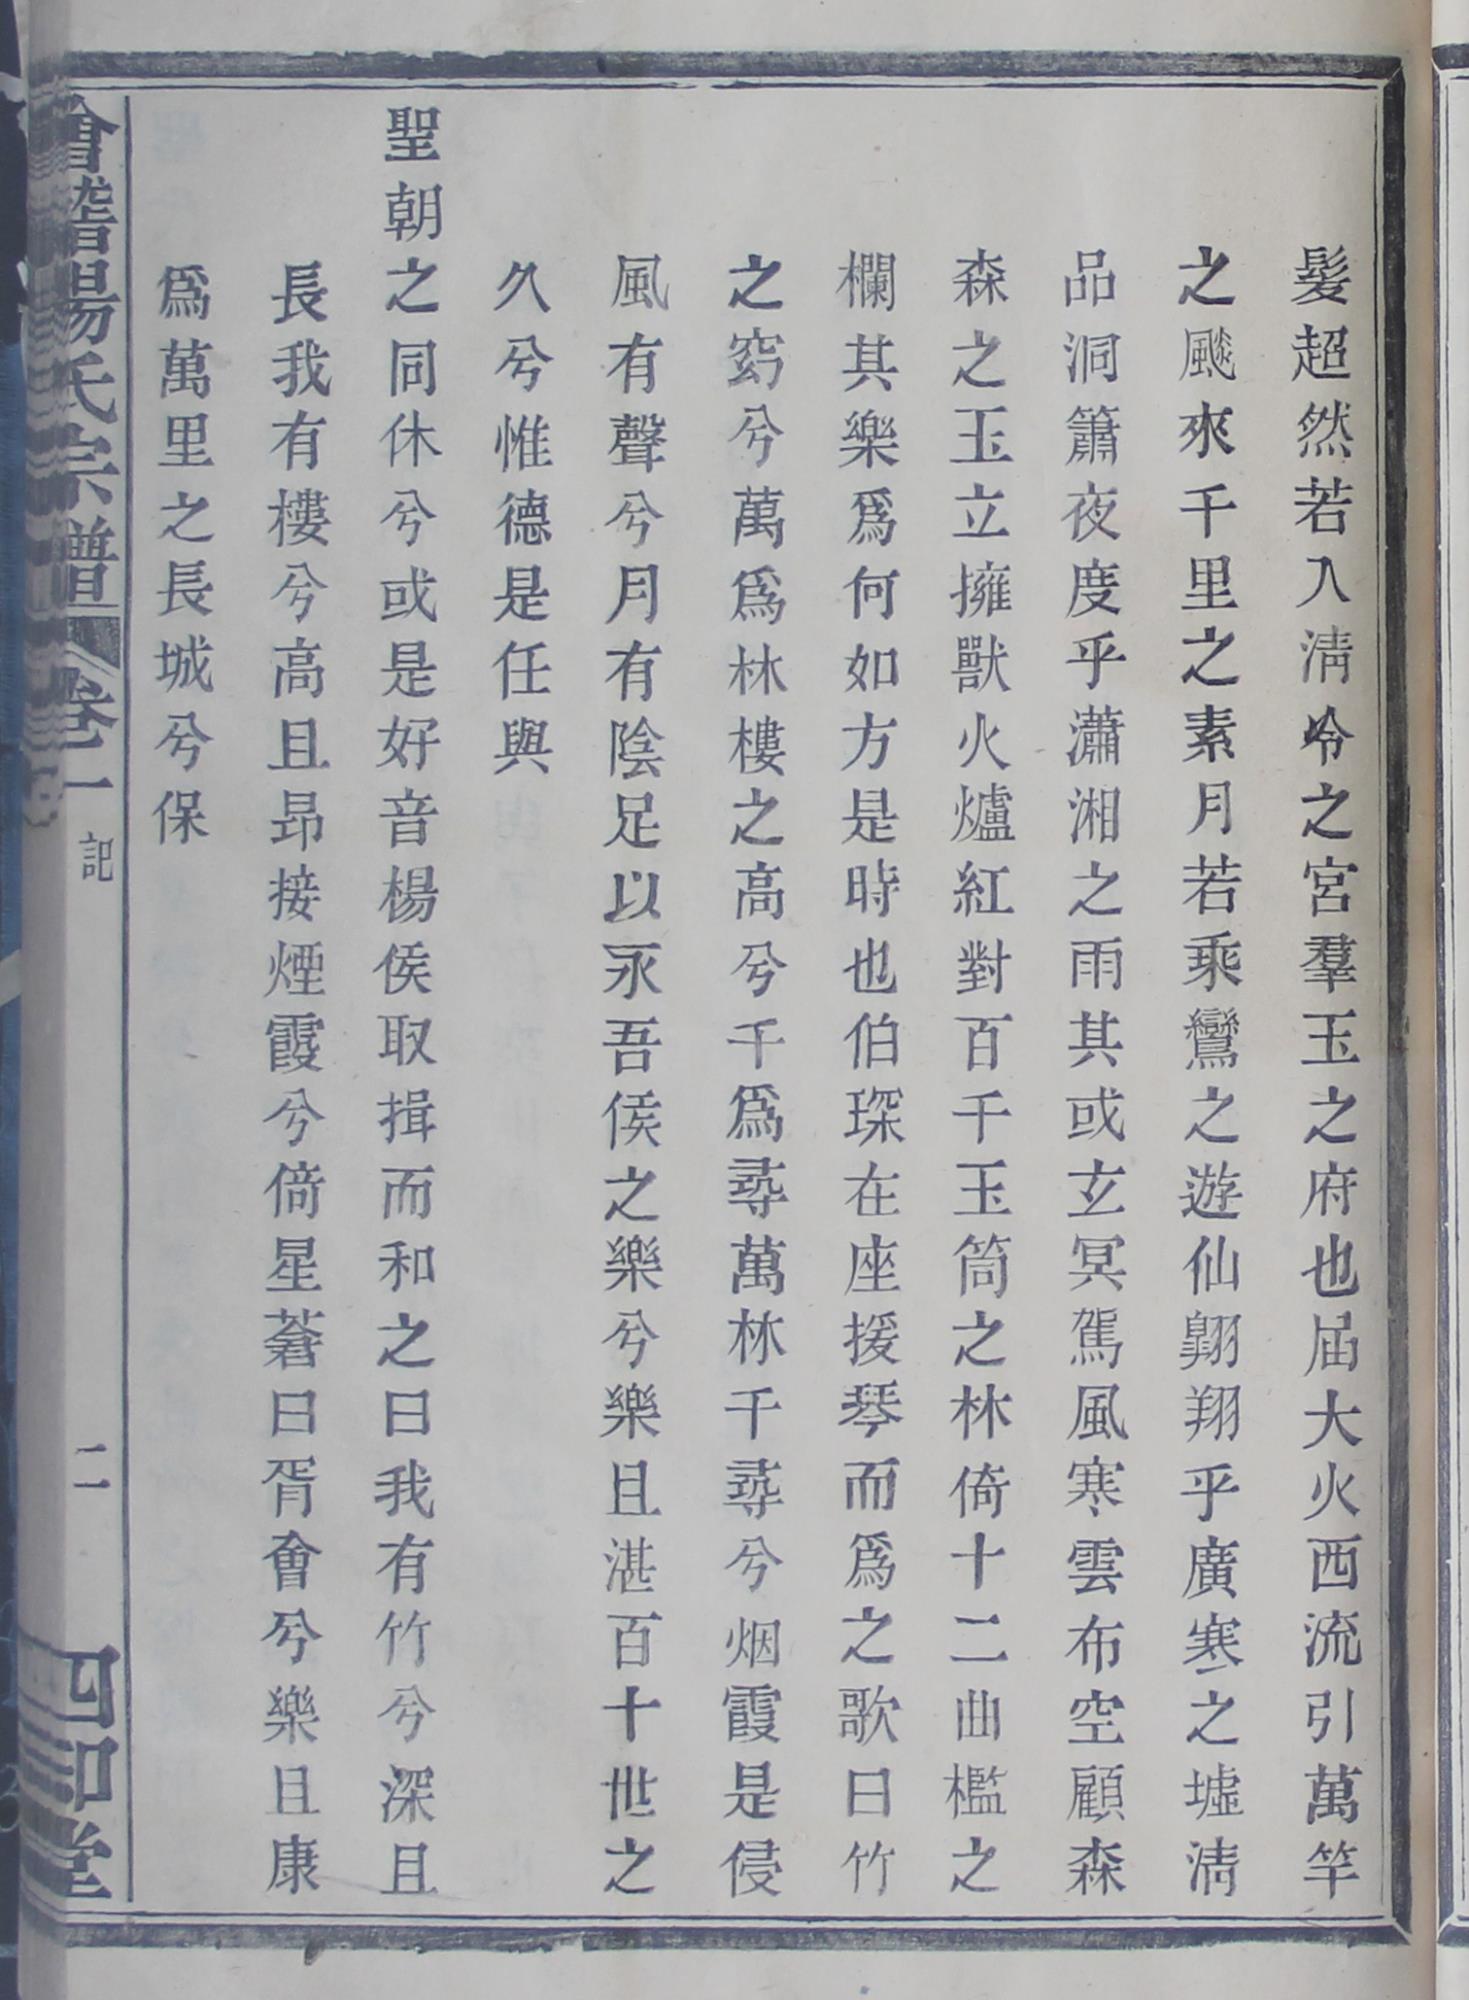 髮超然若入淸冷之宮羣玉之府也屆大火西流引萬竿
之颷來千里之素月若乘鸞之遊仙翺翔乎廣寒之墟淸
品洞簫夜度乎瀟湘之雨其或玄冥駕風寒雲布空顧森
森之玉立擁獸火爐紅對百千玉筒之林倚十二曲檻之
欄其樂爲何如方是時也伯琛在座援琴而爲之歌曰竹
之窈兮萬爲林樓之高兮千爲尋萬林千尋兮烟霞是侵
風有聲兮月有陰足以永吾侯之樂兮樂且湛百十世之
久兮惟德是任與
聖朝之同休兮或是好音楊侯取揖而和之曰我有竹兮深且
長我有樓兮高且昻接煙霞兮倚星蒼曰胥會兮樂且康
爲萬里之長城兮保
會稽楊氏宗譜 卷一 記 二 四知堂